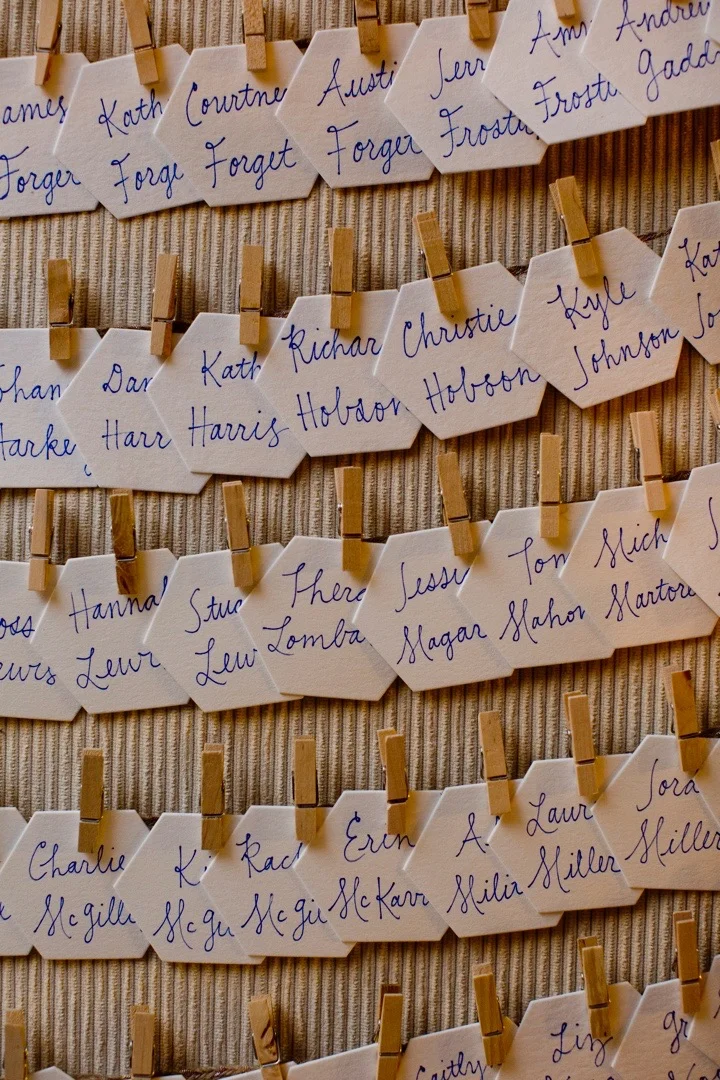 ames
Forger
Kath
Forge
Courtne
Forget
Austi
Forget
Jerr
Froste
Amy
Froste
Andrew
Gadd
Johan
Harke
Dan
Harr
Kath
Harris
Richar
Hobson
Christie
Hobson
Kyle
Johnson
Kat
Jo
oss
eurs
Hannal
Leur
Stua
Leu
There
Lomba
Jessi
Magar
Tom
Mahon
Mich
Martore
Charlie
McGill
Ki
McGu
Rach
McGui
Erin
McKarr
A.
Milia
Laur
Miller
Jora
Miller
Caitly
Liz
gr